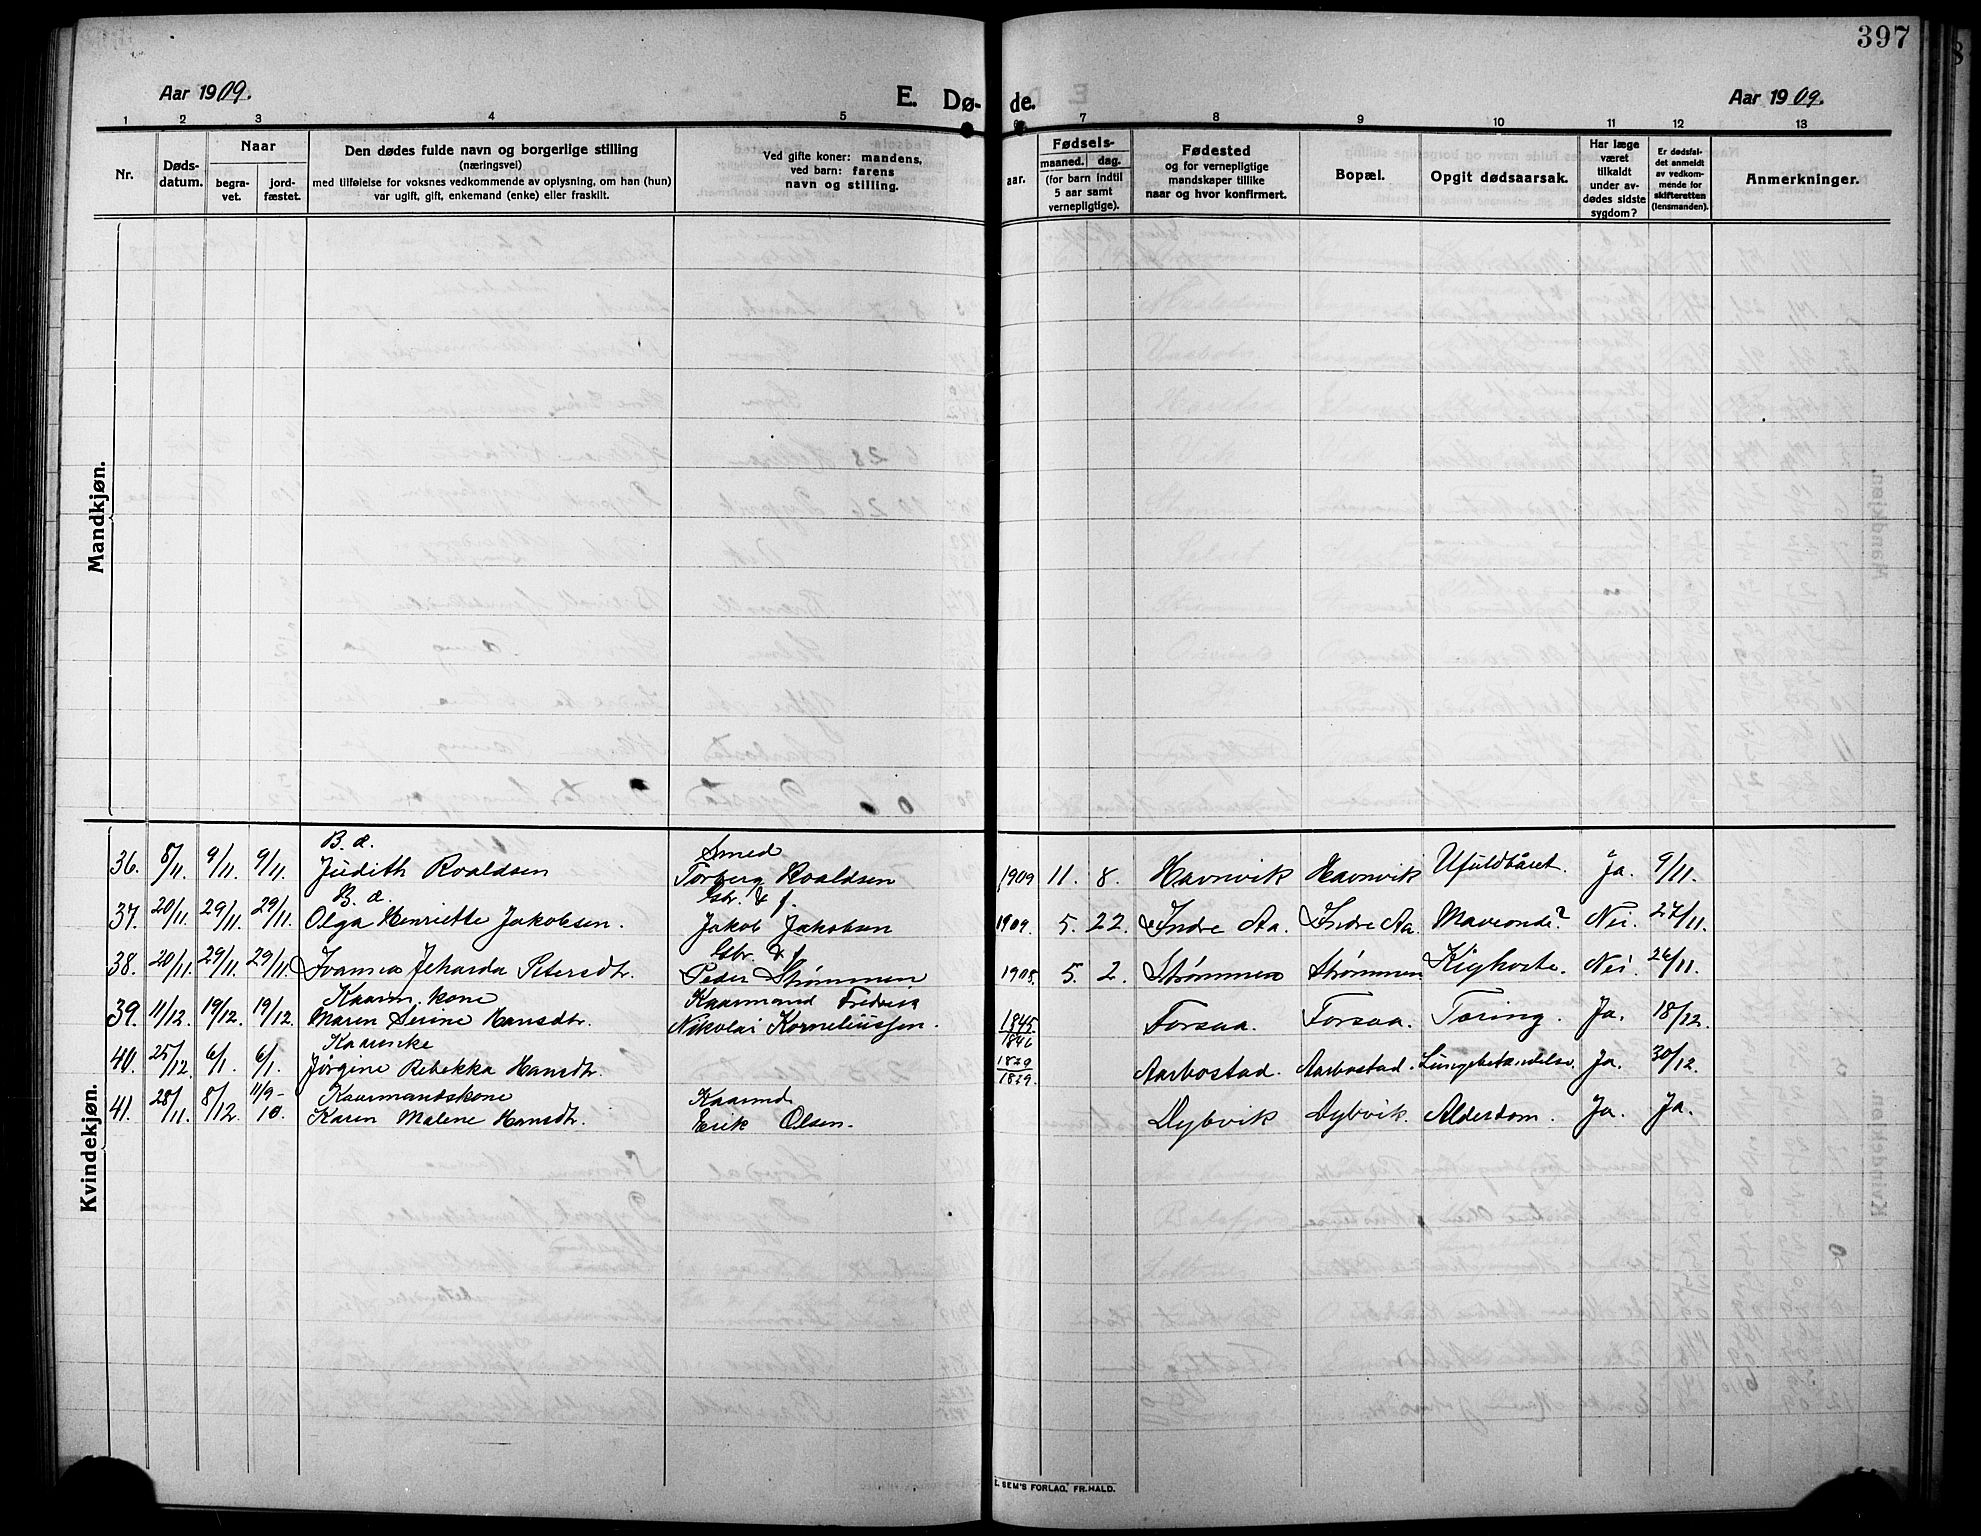 397
Aar 1909.
E. Dø-
de.
Aar 1909.
1 2 3 4 5 6 7 8 9 10 11 12 13
Nr.
Døds-
datum.
Naar
begra-
vet.
jord-
fæstet.
Den dødes fulde navn og borgerlige stilling
(næringsvei)
med tilføielse for voksnes vedkommende av oplysning, om han (hun)
var ugift, gift, enkemand (enke) eller fraskilt.
Ved gifte koner: mandens,
ved barn: farens
navn og stilling.
aar.
Fødsels-
maaned. dag.
(for barn indtil
5 aar samt
vernepligtige).
Fødested
og for vernepligtige
mandskaper tillike
naar og hvor konfirmert.
Bopæl.
Opgit dødsaarsak.
Har læge
været
tilkaldt
under av-
dødes sidste
sygdom?
Er dødsfal-
det anmeldt
av vedkom-
mende for
skifteretten
(lensmanden).
Anmerkninger.
Mandkjøn.
Kvindekjøn.
B. a. Smed
36. 8/11. 9/11. 9/11. Judith Roaldsen Torberg Roaldsen 1909 11. 8. Havnvik Havnvik Ufuldbåret. Ja. 9/11.
B. a. Gbr. & f.
37. 20/11. 29/11. 29/11. Olga Henriette Jakobsen. Jakob Jakobsen 1909. 5. 22. Indre Aa. Indre Aa. Maveonde? Nei. 27/11.
Gbr. & f
38. 20/11. 29/11. 29/11. Petersdtr. Peder Strømmen 1908. 5. 2. Strømmen Strømmen Kighoste. Nei. 26/11.
Kaarm. kone Kaarmand
39. 11/12. 19/12. 19/12. Maren Serine Hansdtr. Nikolai Korneliussen. 1845 1846 Forsaa. Forsaa. Tæring. Ja. 18/12.
40. 25/12. 6/1. 6/1. Jørgine Rebekka Hansdtr. 1829 1829. Aarbostad. Aarbostad. Lungebetændelse. Ja. 30/12.
Kaarmandskone Kaarmd
41. 28/11. 8/12. 11/9-10. Karen Malene Hansdtr. Erik Olsen. Dybvik Dybvik. Alderdom. Ja. Ja.
SEM'S FORLAG, FR.HALD.